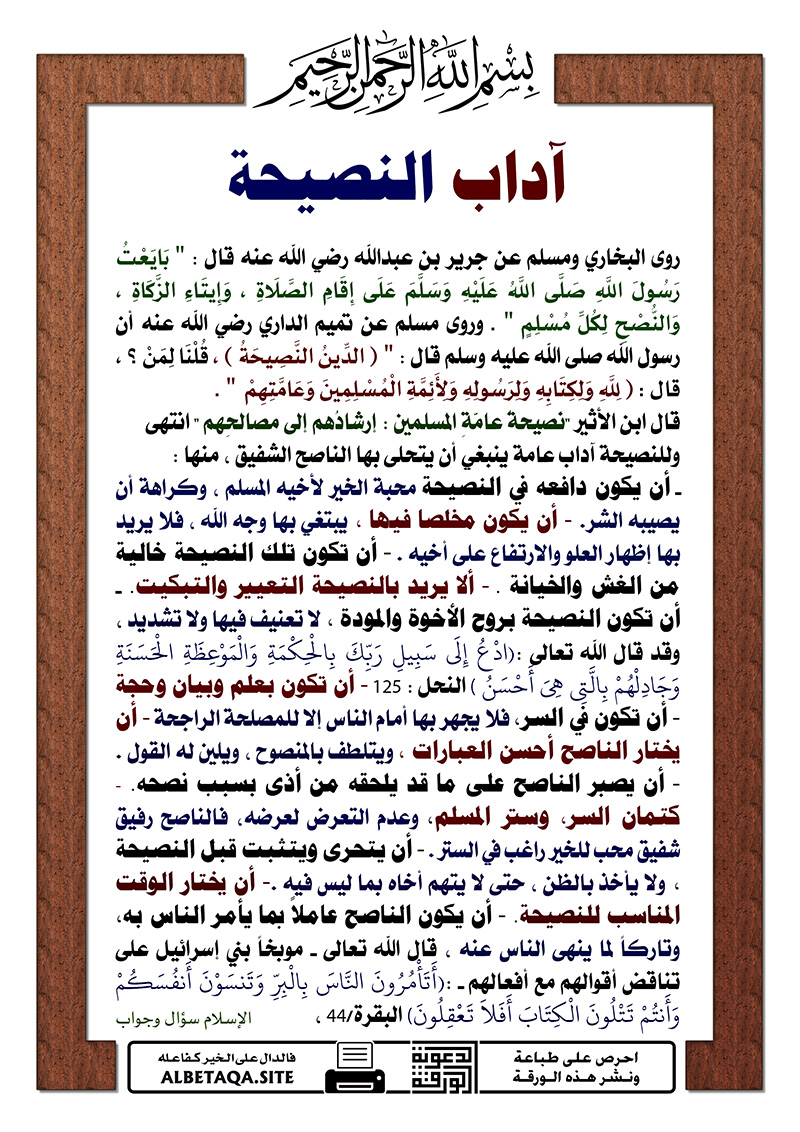 بِسْمِ اللَّهِ الرَّحْمَنِ الرَّحِيمِ
آداب النصيحة
روى البخاري ومسلم عن جرير بن عبدالله رضي الله عنه قال : " بَايَعْتُ
رَسُولَ اللَّهِ صَلَّى اللَّهُ عَلَيْهِ وَسَلَّمَ عَلَى إِقَامِ الصَّلَاةِ ، وَإِيتَاءِ الزَّكَاةِ ،
وَالنُّصْحِ لِكُلِّ مُسْلِمٍ " . وروى مسلم عن تميم الداري رضي الله عنه أن
رسول الله صلى الله عليه وسلم قال : " ( الدِّينُ النَّصِيحَةُ ) ، قُلْنَا لِمَنْ ؟ ،
قال : ( لِلَّهِ وَلِكِتَابِهِ وَلِرَسُولِهِ وَلأَئِمَّةِ الْمُسْلِمِينَ وَعَامَّتِهِمْ " .
قال ابن الأثير "نصيحة عامَةِ المسلمين : إرشادُهم إلى مصالحِهم" انتهى
وللنصيحة آداب عامة ينبغي أن يتحلى بها الناصح الشفيق ، منها :
ـ أن يكون دافعه في النصيحة محبة الخير لأخيه المسلم ، وكراهة أن
يصيبه الشر. - أن يكون مخلصا فيها ، يبتغي بها وجه الله ، فلا يريد
بها إظهار العلو والارتفاع على أخيه . - أن تكون تلك النصيحة خالية
من الغش والخيانة . - ألا يريد بالنصيحة التعيير والتبكيت. ـ
أن تكون النصيحة بروح الأخوة والمودة ، لا تعنيف فيها ولا تشديد ،
وقد قال الله تعالى :(ادْعُ إِلَى سَبِيلِ رَبِّكَ بِالْحِكْمَةِ وَالْمَوْعِظَةِ الْحَسَنَةِ
وَجَادِلْهُمْ بِالَّتِي هِيَ أَحْسَنُ ) النحل : 125 - أن تكون بعلم وبيان وحجة
- أن تكون في السر، فلا يجهر بها أمام الناس إلا للمصلحة الراجحة - أن
يختار الناصح أحسن العبارات ، ويتلطف بالمنصوح ، ويلين له القول .
- أن يصبر الناصح على ما قد يلحقه من أذى بسبب نصحه. -
كتمان السر، وستر المسلم، وعدم التعرض لعرضه، فالناصح رفيق
شفيق محب للخير راغب في الستر . - أن يتحرى ويتثبت قبل النصيحة
، ولا يأخذ بالظن ، حتى لا يتهم أخاه بما ليس فيه .- أن يختار الوقت
المناسب للنصيحة. - أن يكون الناصح عاملاً بما يأمر الناس به،
وتاركاً لما ينهى الناس عنه ، قال الله تعالى ـ موبخاً بني إسرائيل على
تناقض أقوالهم مع أفعالهم ـ :(أَتَأْمُرُونَ النَّاسَ بِالْبِرِّ وَتَنسَوْنَ أَنفُسَكُمْ
وَأَنتُمْ تَتْلُونَ الْكِتَابَ أَفَلاَ تَعْقِلُونَ) البقرة/44 ، الإسلام سؤال وجواب
احرص على طباعة
ونشر هذه الورقة
الورقة
الدعوية
فالدال على الخير كفاعله
ALBETAQA.SITE